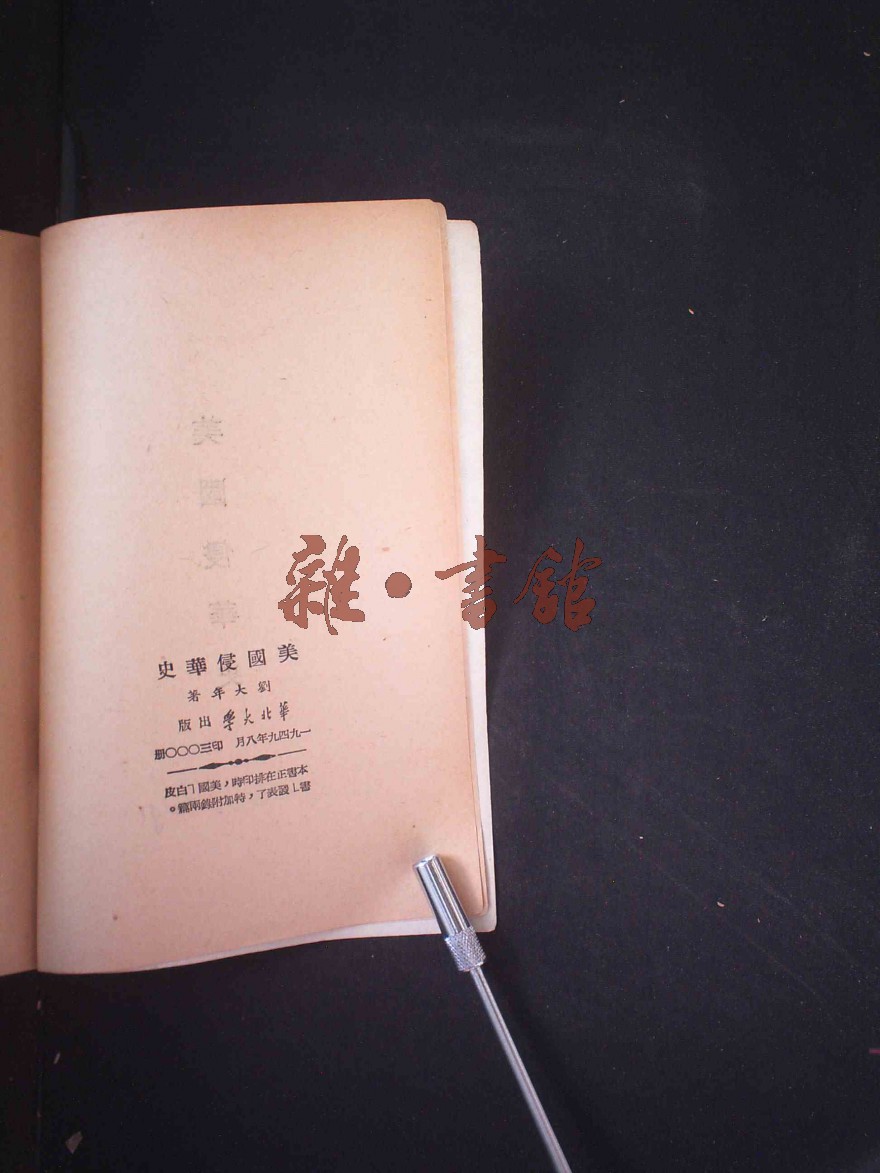 美國侵華史
劉大年著
華北大學出版
一九四九年八月 印三〇〇〇册
本書正在排印時，美國「白皮
書」發表了，特加附錄兩篇。
雜•書館